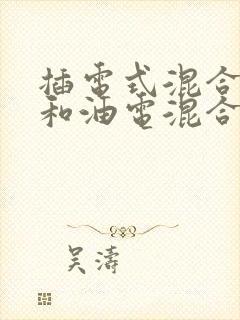 插電式混合
和油電混合
吳濤